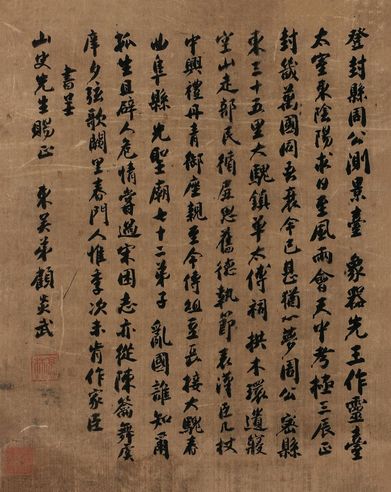 登封縣周公測景臺 象器先王作靈臺
太室東陰陽求日至風雨會天中考極三辰正
封畿萬國同吾衰今已甚猶一夢周公 密縣
東三十五里大騩鎮卓太傅祠 拱木環遺寢
空山走部民循思舊德執節表臣几杖
中興禮丹青御座親至今傳俎豆長接大騩春
曲阜縣 先聖廟七十二弟子 亂國誰知爾
孤生且辟人危情嘗過宋困志亦從陳籥舞虞
庠夕弦歌闕里春門人惟季次未肯作家臣
書呈
山史先生賜正 東吳弟顧炎武